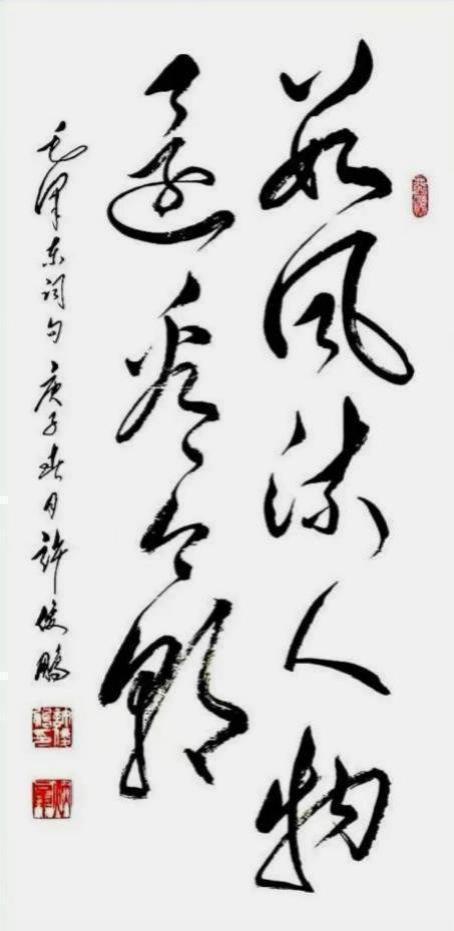 數風流人物
還看今朝
毛澤東詞句 庚子春月許俊鵬